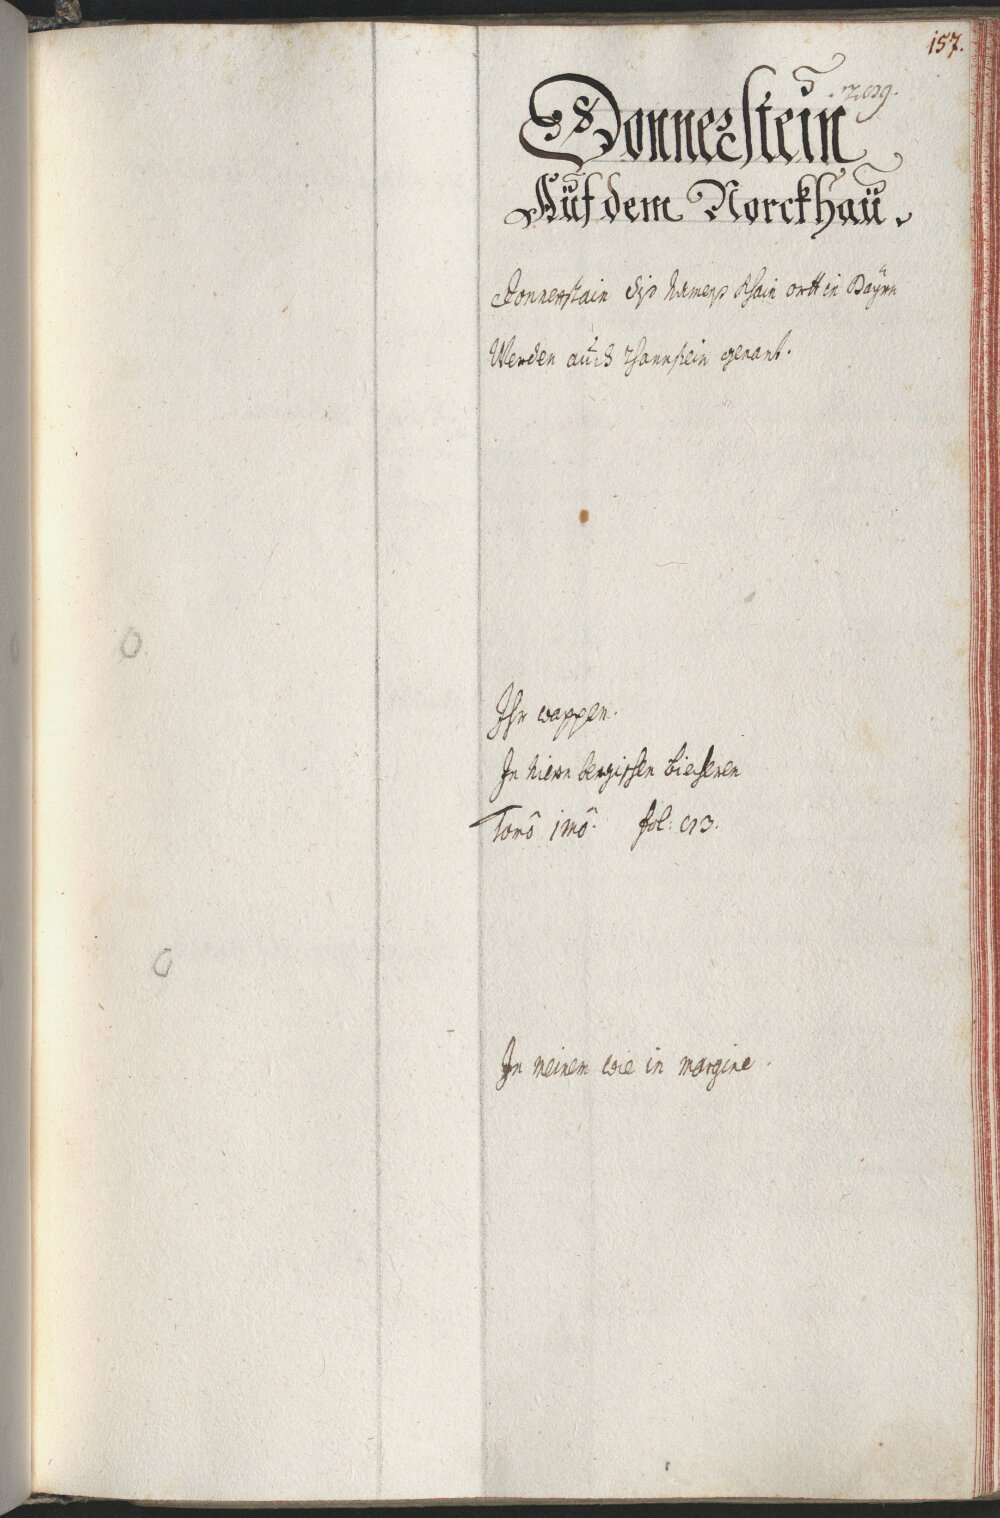 157.
Donnerstein
Auf dem Norckhaü.
Donnerstain diß Namens khain ortt in Bayrn
Werden auch Thannstein genant.
Ihr wappen.
In Niernbergischen Biecheren
Tomô imô. fol: 93.
In meinem wie in margine.